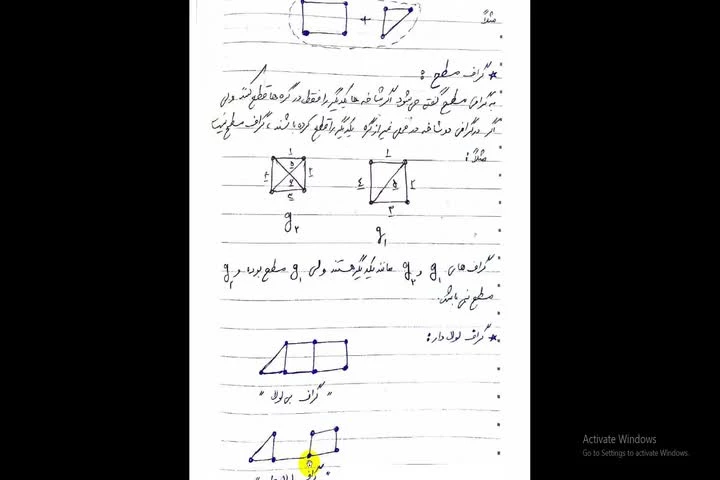 مثلاً
+
* گراف مسطح :
به گرافی مسطح گفته می شود اگر شاخه ها یکدیگر را فقط در گره ها قطع کنند ولی
اگر در گرافی دو شاخه در محلی غیر از گره یکدیگر را قطع کرده باشند ، گراف مسطح نیست
مثلاً :
۱ ۲ ۳ ٤ ۵
۱ ۲ ۳ ٤ ۵
g₁
g₂
گراف های g₁ و g₂ همانند یکدیگر هستند ولی g₁ مسطح بوده و g₂
مسطح نمی باشد.
* گراف لولا دار :
" گراف بی لولا "
Activate Windows
Go to Settings to activate Windows.